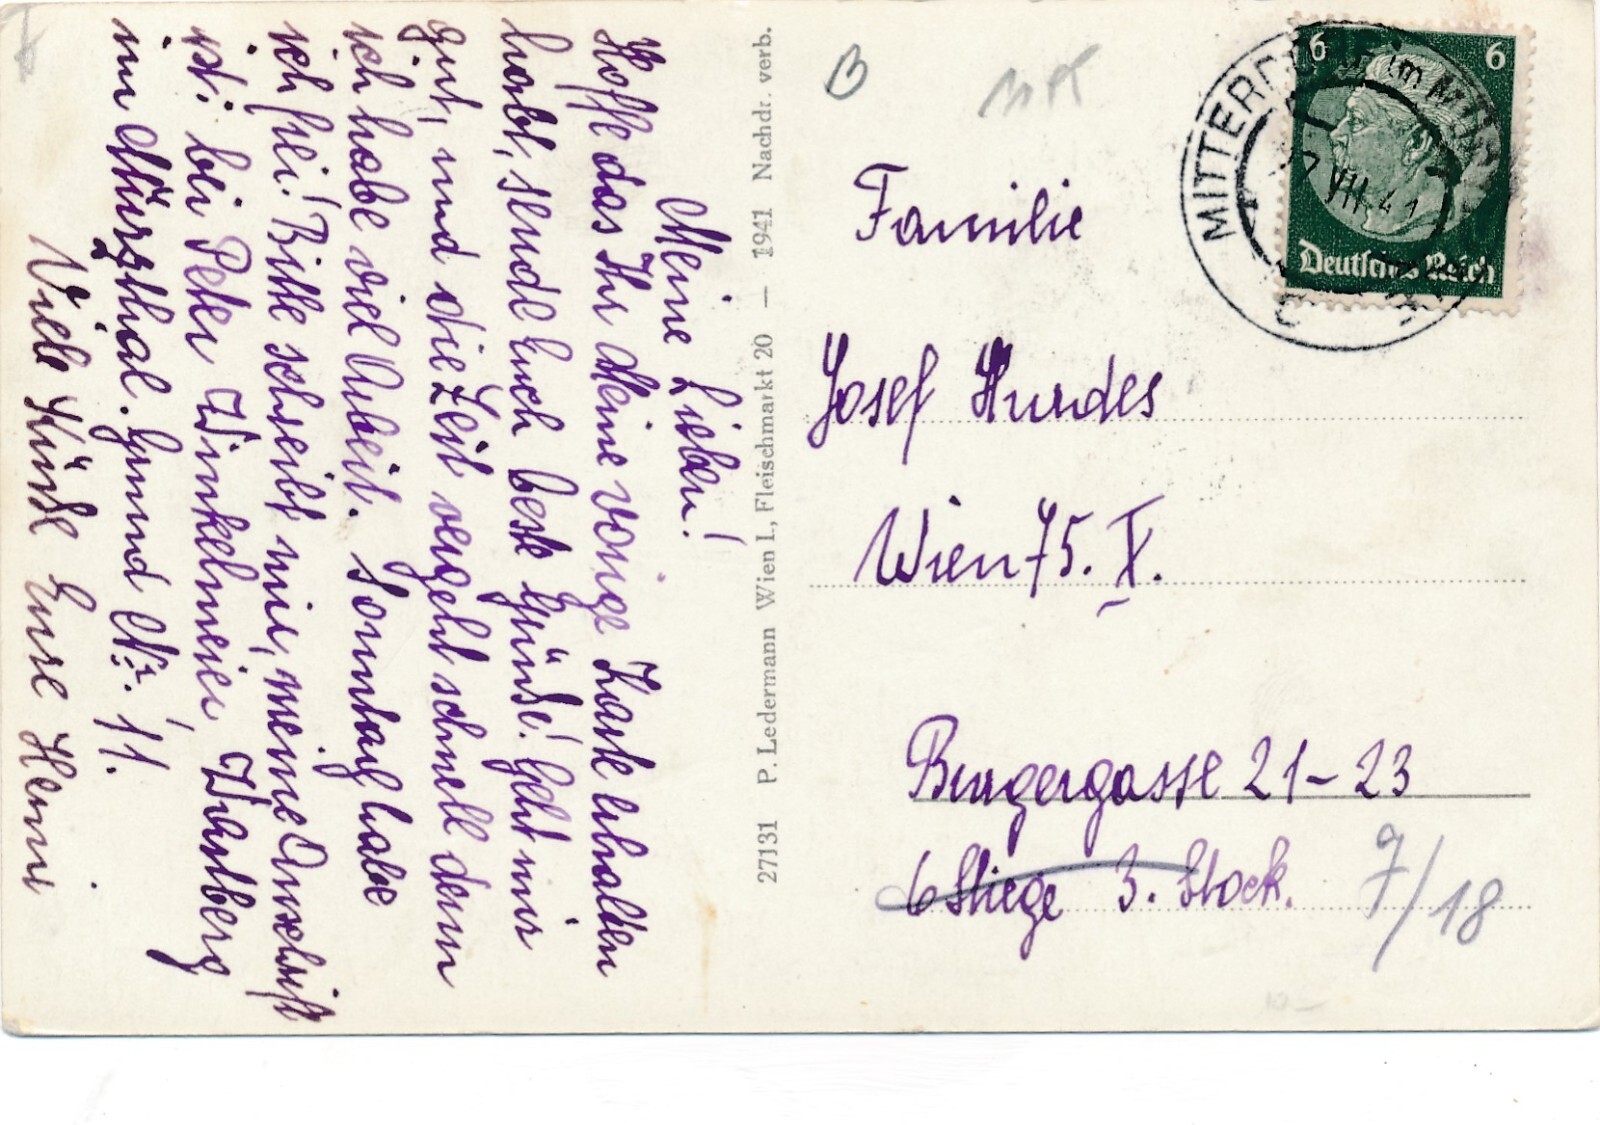 Meine Lieben!
Hoffe das Ihr Meine vorige Karte erhalten
habt, sende Euch beste Grüße! Geht mir
gut, und die Zeit vergeht schnell denn
ich habe viel Arbeit. Sonntag habe
ich frei! Bitte schreibt mir, meine Anschrift
ist: bei Peter Winkelmeier Wartberg
im Mürzthal. Gmund Nr. 11.
Viele Küße Eure Henni
27131 P. Ledermann Wien I., Fleischmarkt 20 — 1941 Nachdr. verb.
B
MITTERDORF im MÜRZ
VII 41
6 6
Deutsches Reich
Familie
Josef Hurdes
Wien 75. X.
Burgergasse 21-23
6 Stiege 3. Stock. 7/18